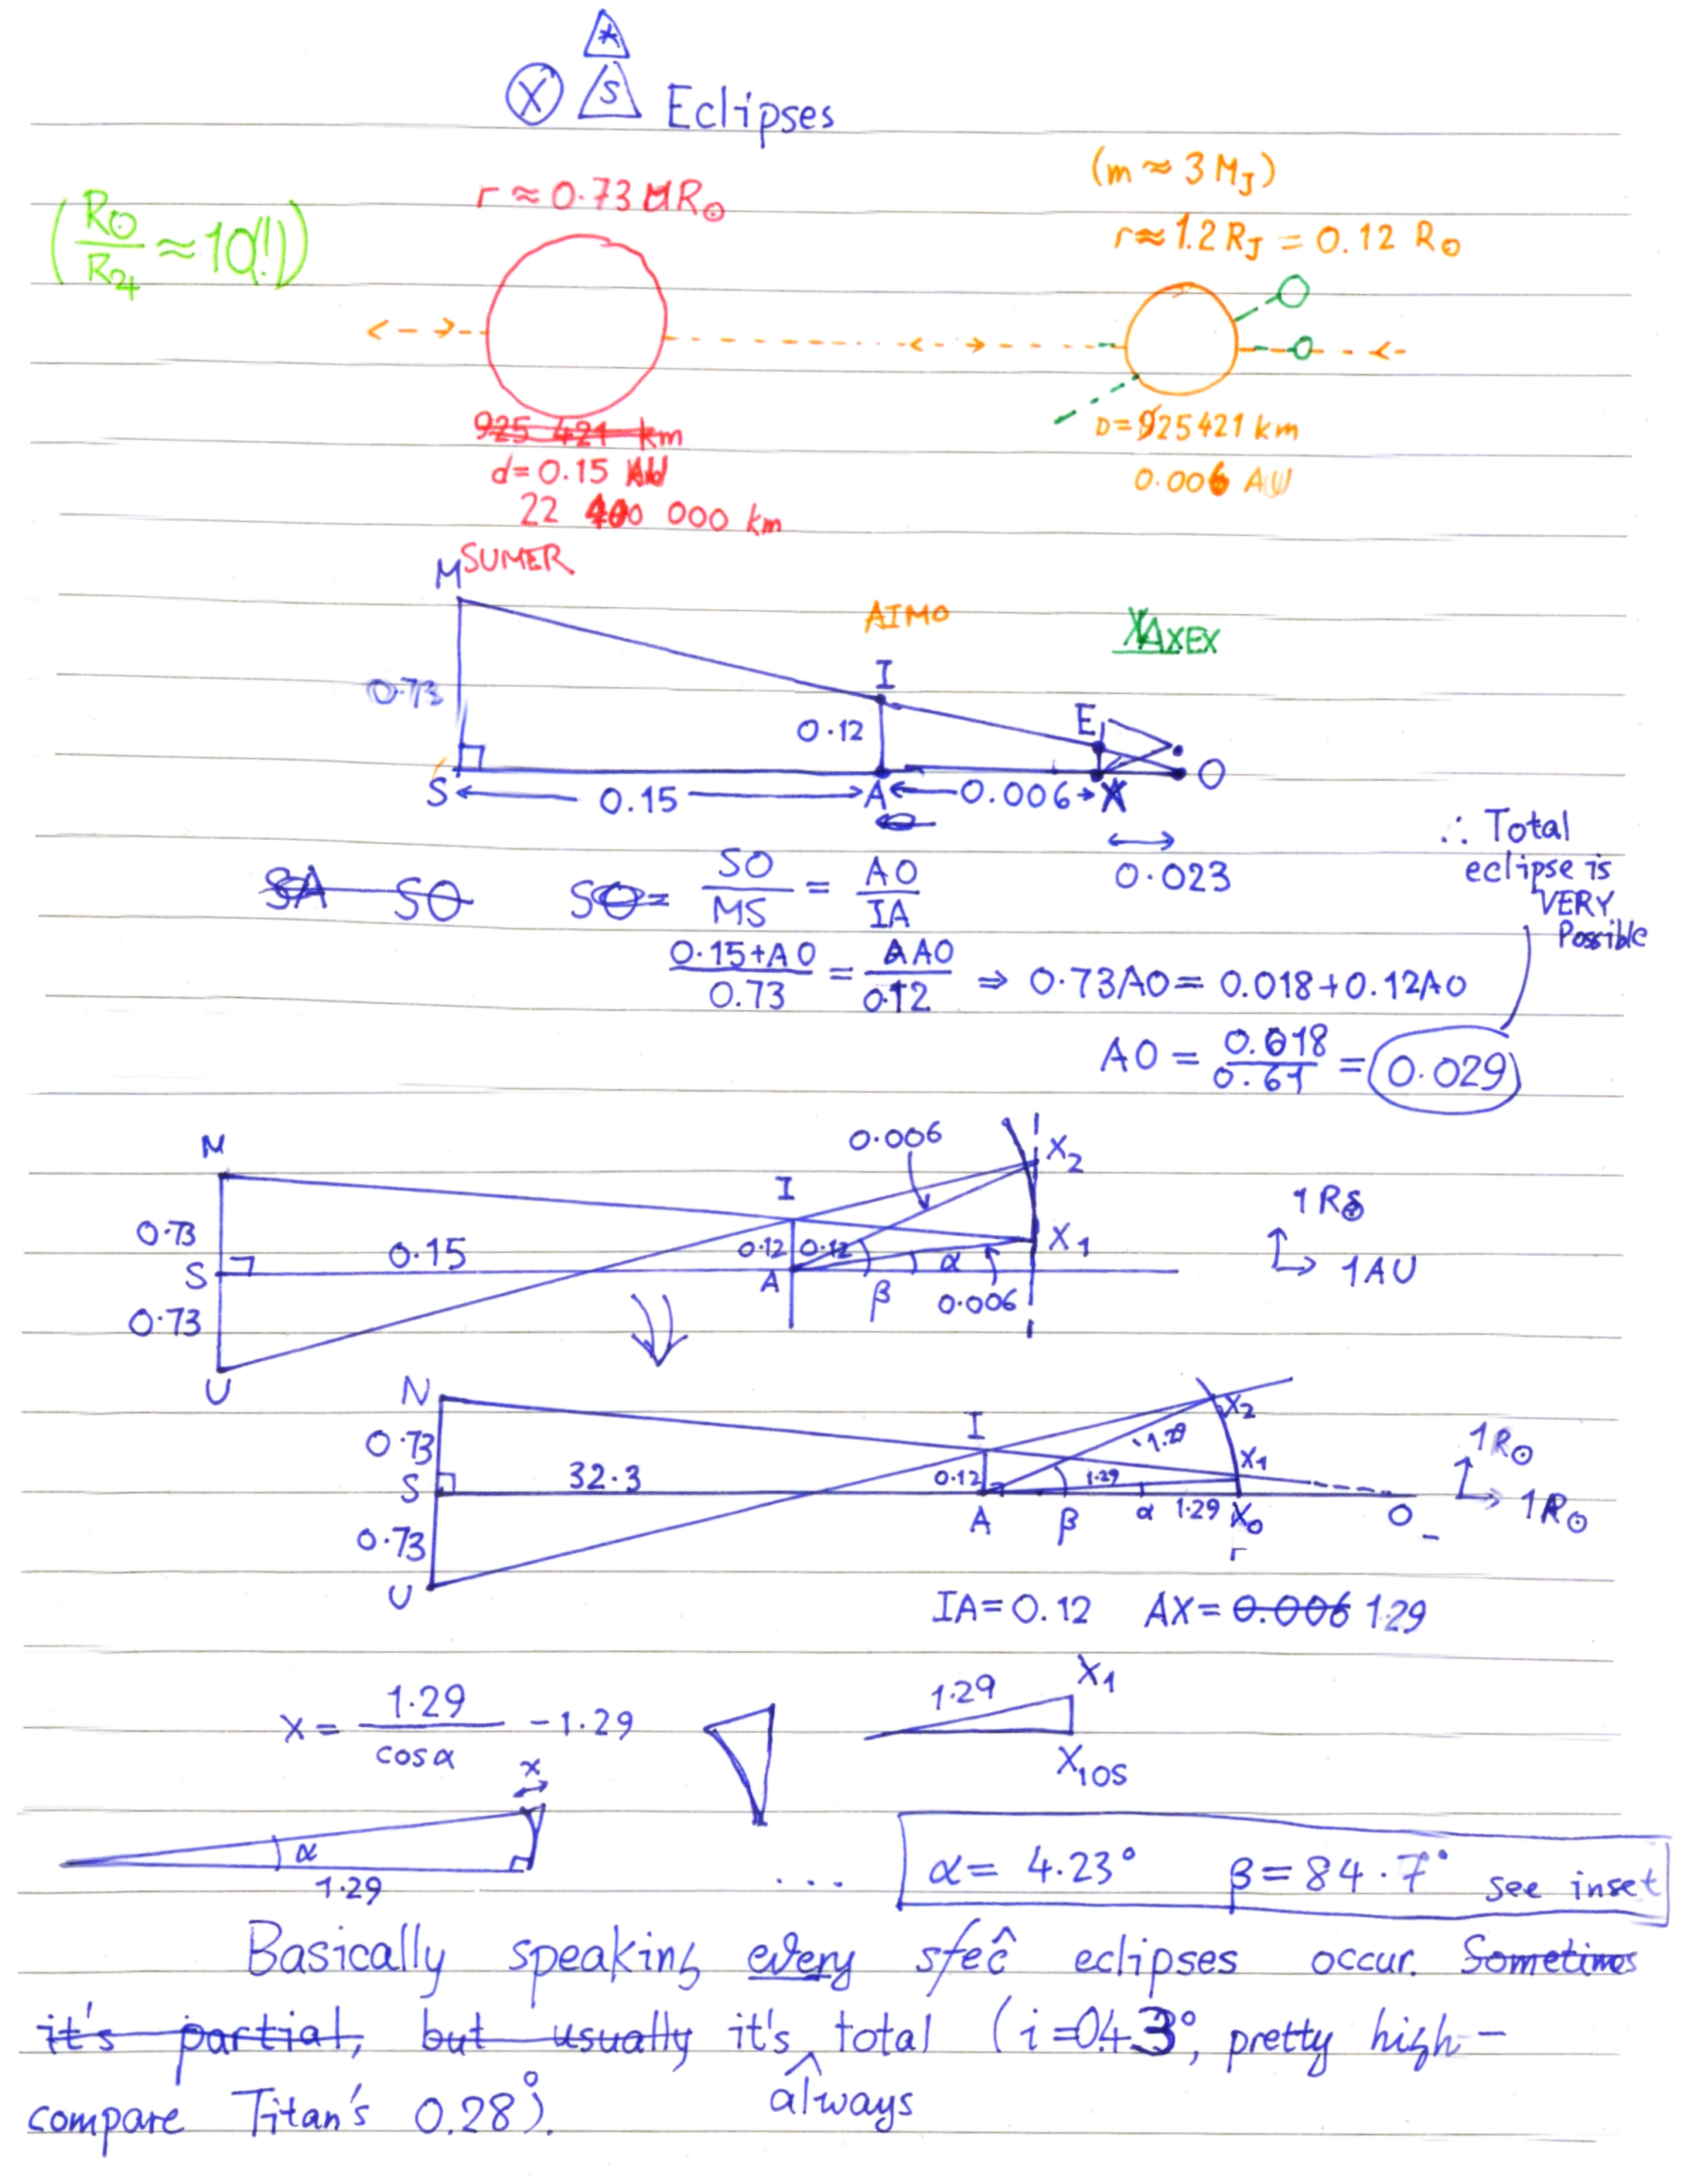 *
X S Eclipses
(m ≈ 3 M_J)
r ≈ 0.73 R☉
(R☉/R♃ ≈ 10(!))
r ≈ 1.2 R_J = 0.12 R☉
925 421 km
D = 925421 km
d = 0.15 AU
0.006 AU
22 400 000 km
M SUMER
AIMO
XAXEX
I
0.73
E
0.12
S 0.15 A 0.006 X O
0.023
∴ Total
eclipse is
VERY
Possible
SA SO SO = SO/MS = AO/IA
(0.15+AO)/0.73 = AO/0.12 ⇒ 0.73AO = 0.018+0.12AO
AO = 0.018/0.61 = 0.029
M 0.006 X₂
I
1R☉
0.73 0.15 0.12 0.12 α X₁
S A 1AU
0.73 β 0.006
U
N I X₂
0.73 1.29 X₁ 1R☉
32.3 0.12 1.29
S A β α 1.29 X₀ O 1R☉
0.73 r
U
IA = 0.12 AX = 0.006 1.29
x = 1.29/cosα - 1.29
1.29 X₁
X₁OS
x
α
1.29
... α = 4.23° β = 84.7° see inset
Basically speaking every sfeĉ eclipses occur. Sometimes
it's partial, but usually it's total (i=0.43°, pretty high -
compare Titan's 0.28°).
always